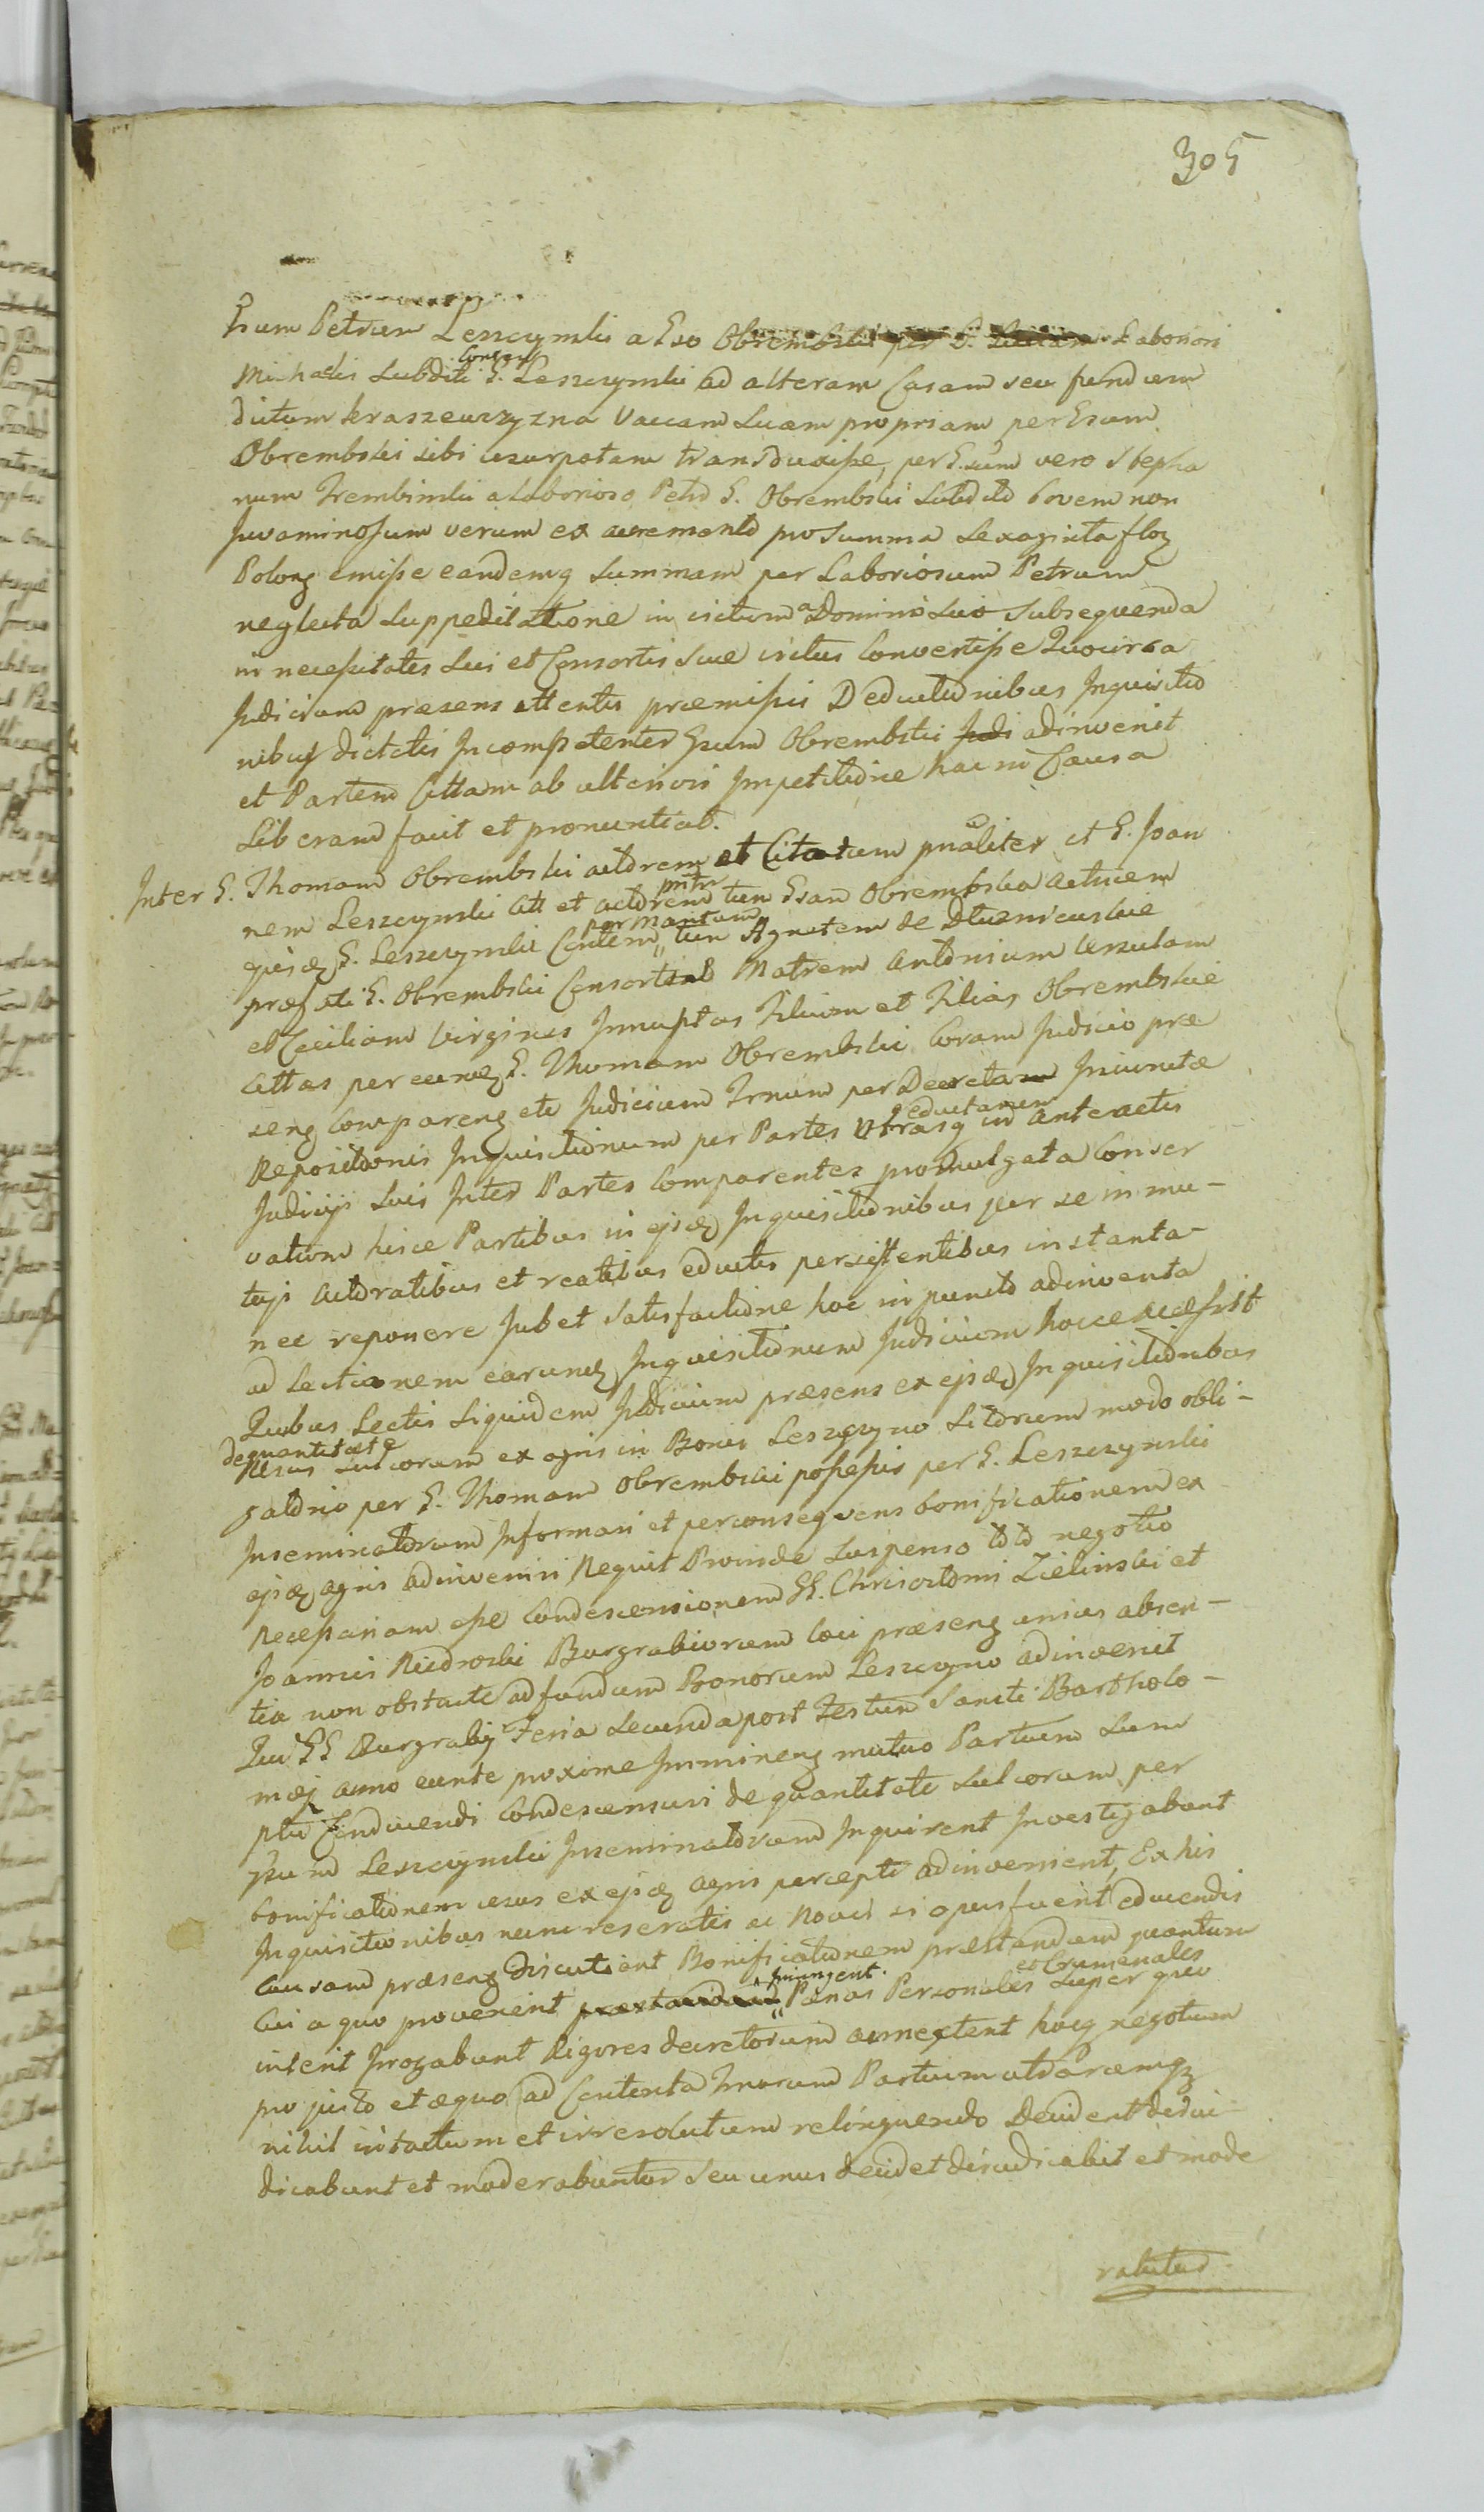 305
Gsum Petrum Leszczynski a Gso Obrembski per L. Laboriosi
Michaelis Subditi G. Leszczynski ad alteram Casam seu fundum
Consortem
dictum Kraszewszyzna Vaccam Suam propriam per Gsum
Obrembski sibi usurpatam transduxisse, per G.sum vero Stepha
num Trembinski a Laborioso Petro G. Obrembski Subdito bovem non
Juvaminosum verum ex augmento pro Summa Sexaginta floz
Poloz emisse eandemq Summam per Laboriosum Petrum
neglecta Suppeditatione in victum a Domino Suo Subsequenda
in necessitates Sui et Consortis Suae victus Convertisse Quocirca
Judicium praesens attentis praemissis Deductionibus Inquisitio
nibus dictatis Incompetenter Gsum Obrembski adinvenit
et Partem Cittam ab ulteriori Impetitione hac in Causa
Liberam facit et pronuntiat.
Inter G. Thomam Obrembski actorem et Citatum pnaliter et G. Joan
nem Leszczynski Citt et actorem tum Gsam Obrembska Actricem
pntr
ejusq G. Leszczynski Citatem tum Agnetem de Dluzniewskie
per mantum
praefati G. Obrembski Consortem Matrem Antonium Urszulam
et Ceciliam Virgines Innuptas Filium et Filias Obrembskie
Cittas per eundz G. Thomam Obrembski Coram Judicio prae
senz Comparenz etc Judicium Trnum per Decretum Iniunctae
Repositionis Inquisitionum per Partes Utrasq in Anteactis
eductarum
Judicijs Suis Inter Partes Comparentes promulgata Conser
vatum hisce Partibus in ejsdq Inquisitionibus per se in mu-
tuis Actoratibus et reatibus eductis persistentibus instanta-
nee reponere Jubet Satisfactione hoc in puncto adinventa
ad Lectionem earundz Inquisitionum Judicium hocce accessit
Quibus Lectis Siquidem Judicium praesens ex ejsdq Inquisitionibus
de quantitate
Usus Sulcorum ex agris in Bonis Leszczyno Sitorum modo obli-
gatorio per G. Thomam Obrembski possessis per G. Leszczynski
Inseminatorum Informari et per consequens bonificationem ex
ejsdq agris adinveniri Nequit Proinde Suspenso toto negotio
Necessariam esse Condescensionem GG. Chrisostomi Zielinski et
Joannis Niedroski Burgrabiorum loci praesenz unius absen-
tia non obstante ad fundum Bonorum Leszczyno adinvenit
Qui GG Burgrabij Feria Secunda post Festum Sancti Bartholo-
maei anno eunte proxime Imminenz mutuo Partium Sum
ptu Conducendi Condescensuri de quantitate Sulcorum per
Gsum Leszczynski Inseminatorum Inquirent Investigabunt
bonificationem usus ex ejsdq agris percepti adinvenient, Ex his
Inquisitionibus nunc reseratis ac Novis si opus fuerit educendis
Causam praesenz discutient Bonificationem praestandam quantum
Cui a quo provenerit praestandam Paenas Personales Super quo
Iniungent. et Crumenales
inserit Irrogabunt Rigores decretorum annectent hocq negotium
pro justo et aequo ad Contenta Trnorum Partium utrarumqz
nihil intactum et irresolutum relinquendo Decident dijudi-
dicabunt et moderabuntur Seu unus decidet dijudicabit et mode
rabitur